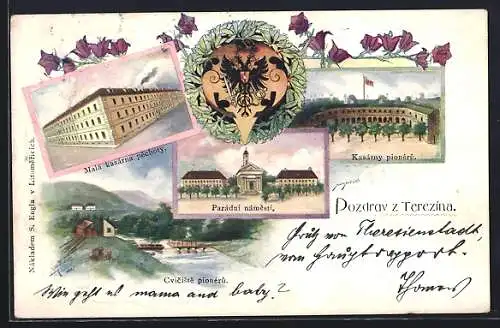 Malá kasárna pěchoty.
Kasárny pionérů.
Parádní náměstí.
Pozdrav z Terezína.
Cvičiště pionérů.
Nákladem S. Engla v Litoměřicích.
Gruß von Theresienstadt,
vom Hauptrapport.
Thomas
Wie geht es mama and baby?